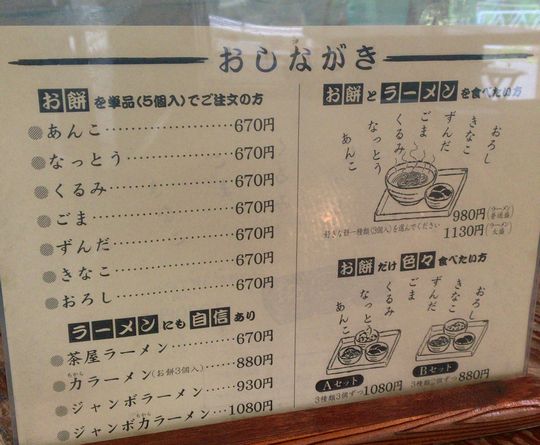 おしながき
お餅を単品(5個入)でご注文の方
あんこ……………670円
なっとう…………670円
くるみ……………670円
ごま………………670円
ずんだ……………670円
きなこ……………670円
おろし……………670円
ラーメンにも自信あり
茶屋ラーメン………670円
力ラーメン(お餅3個入)……880円
ちから
ジャンボラーメン……930円
ジャンボ力ラーメン…1080円
ちから
お餅とラーメンを食べたい方
おろし
きなこ
ずんだ
ごま
くるみ
なっとう
あんこ
980円(ラーメン普通盛)
好きな餅一種類(3個入)を選んでください
1130円(ラーメン大盛)
お餅だけ色々食べたい方
おろし
きなこ
ずんだ
ごま
くるみ
なっとう
あんこ
Aセット
3種類3個ずつ1080円
Bセット
3種類2個ずつ880円